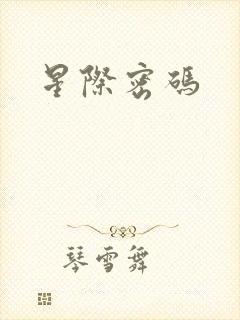 星際密碼
琴雪舞